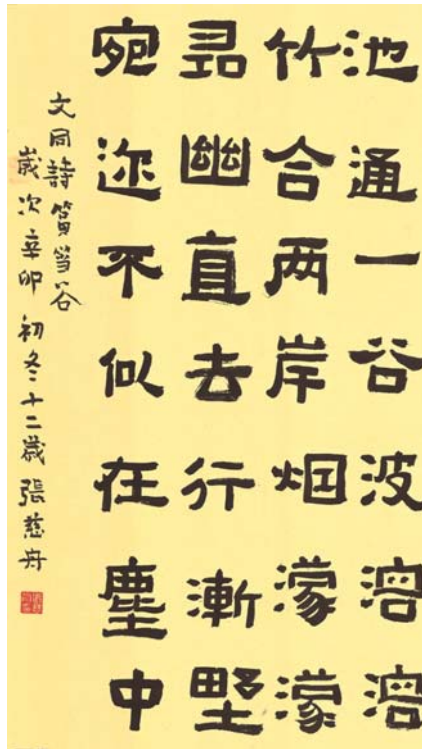 池通一谷波溶溶
竹合两岸烟濛濛
尋幽直去行漸野
宛迩不似在塵中
文同詩筼筜谷
歲次辛卯初冬十二歲張慈舟